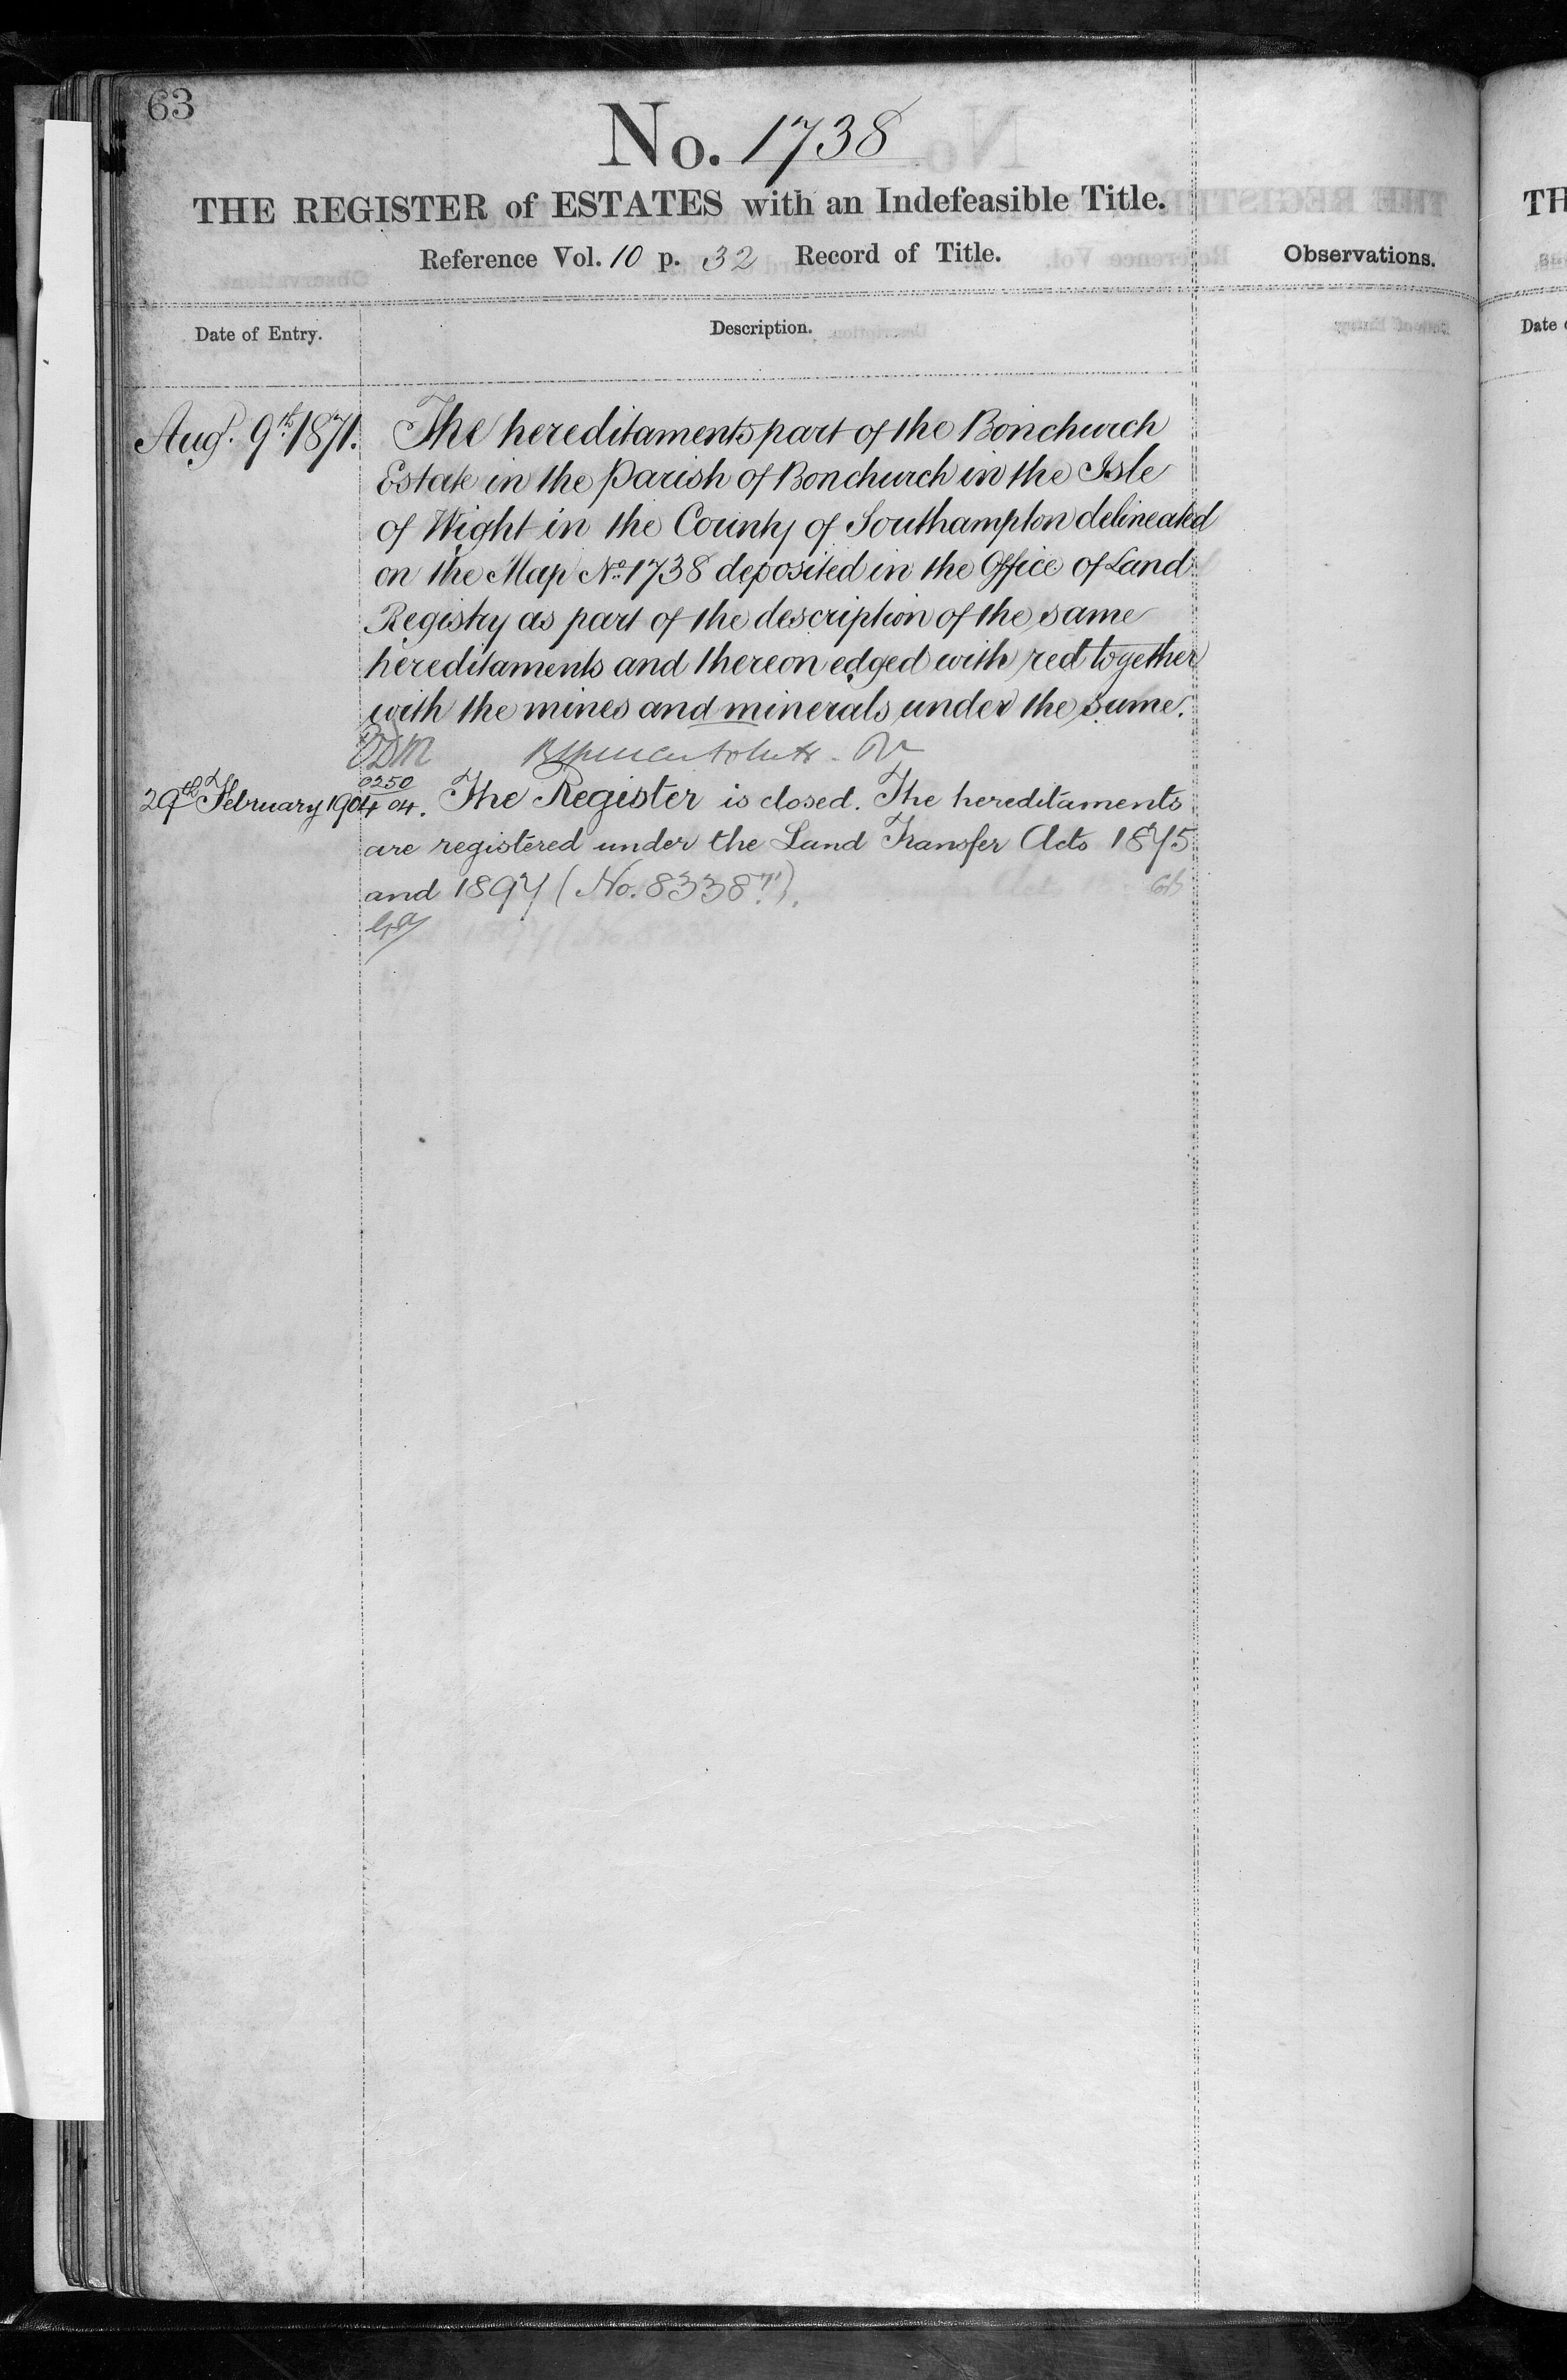 63
No. 1738
THE REGISTER of ESTATES with an Indefeasible Title.
Reference Vol. 10 p. 32 Record of Title.
Observations.
Date of Entry.
Description.
Augt. 9th 1871. The hereditaments part of the Bonchurch
Estate in the Parish of Bonchurch in the Isle
of Wight in the County of Southampton delineated
on the Map No. 1738 deposited in the Office of Land
Registry as part of the description of the same
hereditaments and thereon edged with red together
with the mines and minerals under the same.
0250
29th February 1904 04. The Register is closed. The hereditaments
are registered under the Land Transfer Acts 1875
and 1897 (No. 83387).
TH
Date